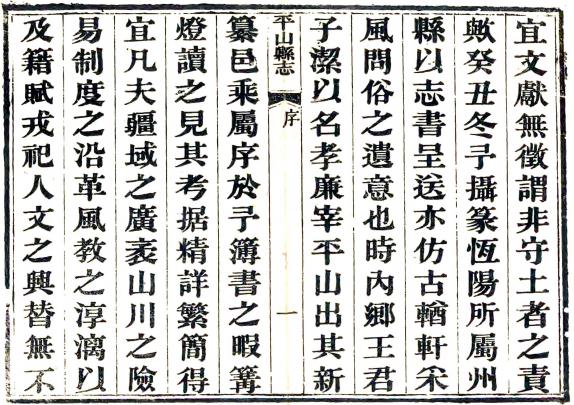 宜文獻無徵謂非守土者之責
歟癸丑冬予攝篆恆陽所屬州
縣以志書呈送亦仿古輶軒采
風問俗之遺意也時內鄉王君
子潔以名孝廉宰平山出其新
平山縣志
序
一
纂邑乘屬序於予簿書之暇篝
燈讀之見其考据精詳繁簡得
宜凡夫疆域之廣袤山川之險
易制度之沿革風教之淳漓以
及籍賦戎祀人文之興替無不